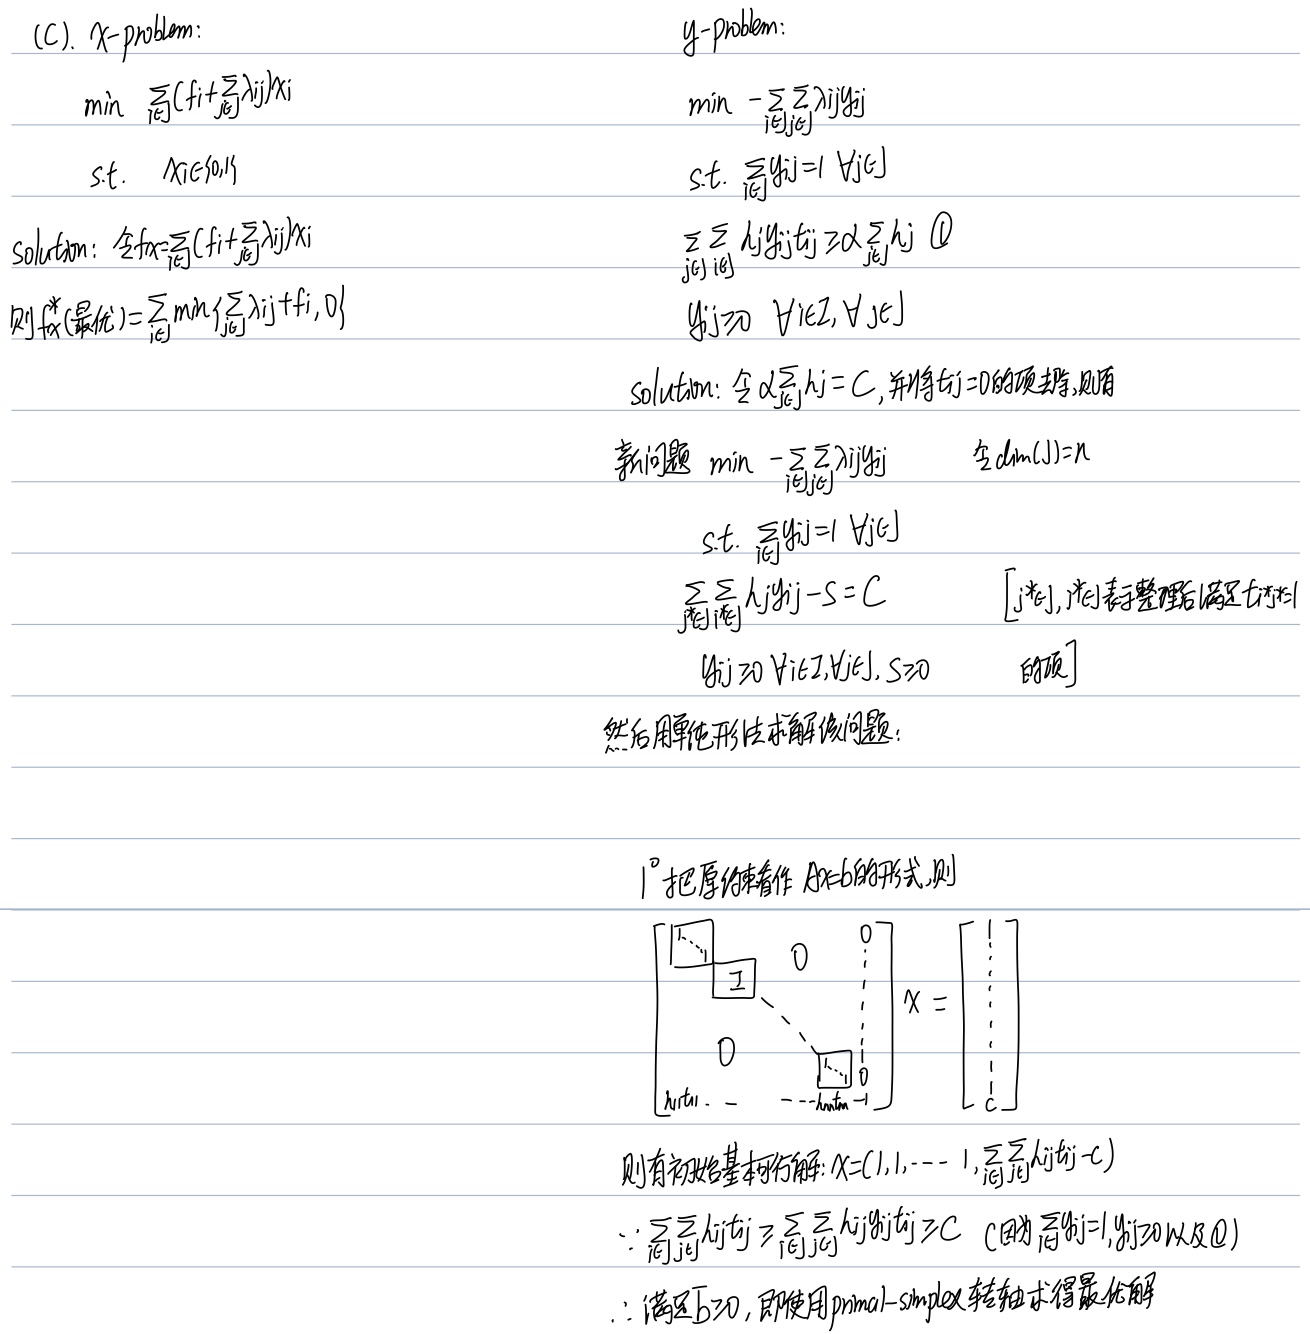 (C). x-problem:
min Σ_{i∈J}(fi+Σ_{j∈J}λij)xi
s.t. xi∈{0,1}
solution: 令fx=Σ_{i∈J}(fi+Σ_{j∈J}λij)xi
则fx*(最优)=Σ_{i∈J}min{Σ_{j∈J}λij+fi,0}
y-problem:
min -Σ_{i∈J}Σ_{j∈J}λijyij
s.t. Σ_{i∈J}yij=1 ∀j∈J
Σ_{j∈J}Σ_{i∈J}hjyijtij≥αΣ_{j∈J}hj ①
yij≥0 ∀i∈I,∀j∈J
solution: 令αΣ_{j∈J}hj=C,并将tij=0的项去除,则有
新问题 min -Σ_{i∈J}Σ_{j∈J}λijyij 令dim(J)=n
s.t. Σ_{i∈J}yij=1 ∀j∈J
Σ_{j*∈J}Σ_{i*∈J}hjyij-S=C [j*∈J,i*∈J表示整理后满足ti*j*=1
yij≥0 ∀i∈I,∀j∈J,S≥0 的项]
然后用单纯形法求解该问题:
1° 把原约束看作Ax=b的形式,则
1 1 0 0
I
x = 1
0 1 1 0 1
h1t11 - - - - - hntnn -1 C
则有初始基本可行解: x=(1,1,---- 1,Σ_{i∈J}Σ_{j∈J}hjtij-C)
∵Σ_{i∈J}Σ_{j∈J}hjtij≥Σ_{i∈J}Σ_{j∈J}hjyijtij≥C (因为Σ_{i∈J}yij=1,yij≥0以及①)
∴满足b̄≥0,即使用primal-simplex转轴求得最优解